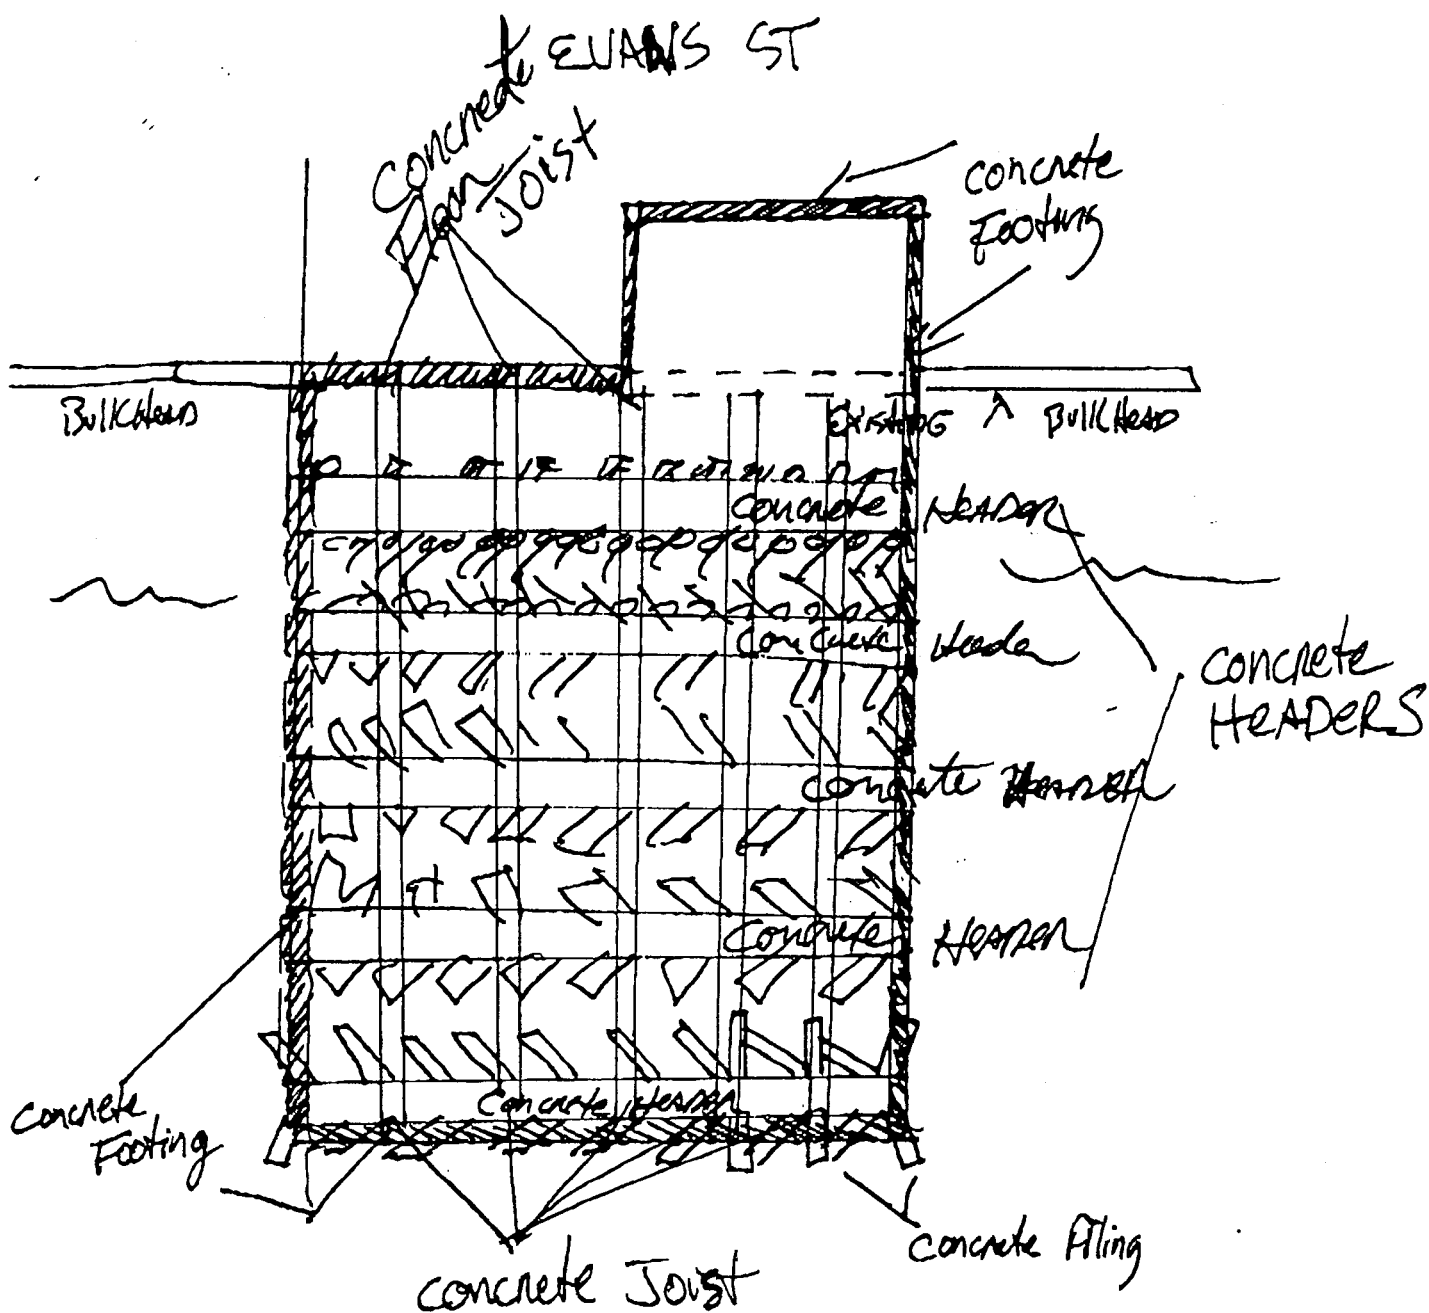 EVANS ST
Concrete
Joist
Concrete
Footing
BulkHead
EXISTING
BulkHead
Concrete HEADER
Concrete Header
Concrete HEADER
Concrete HEADER
Concrete Header
Concrete
HEADERS
Concrete
Footing
Concrete Joist
Concrete Piling